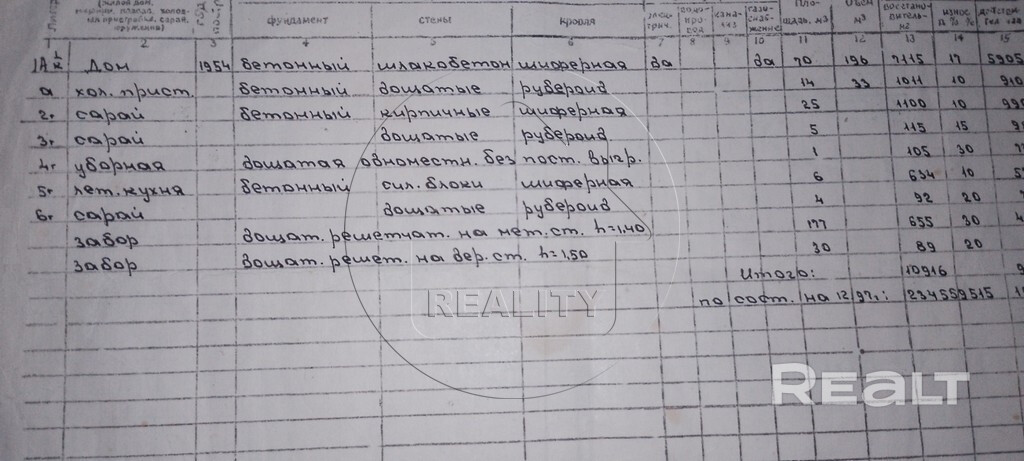 (жилой дом,
фундамент стены кровля
1 2 3 4 5 6 7 8 9 10 11 12 13 14 15
1А дом 1954 бетонный шлакобетон шиферная да да 70 196 7115 17 5905
а хол. прист. бетонный дощатые рубероид 14 33 1011 10 910
2г сарай бетонный кирпичные шиферная 25 1100 10 990
3г сарай дощатые рубероид 5 115 15
4г уборная дощатая одноместн. без пост. выгр. 1 105 30
5г лет. кухня бетонный сил. блоки шиферная 6 634 10
6г сарай дощатые рубероид 4 92 20
забор дощат. решетчат. на мет. ст. h=1,40 177 655 30
забор дощат. решет. на дер. ст. h=1,50 30 89 20
Итого: 10916
по сост. на 12.97г.: 234559515
REALITY
REALT